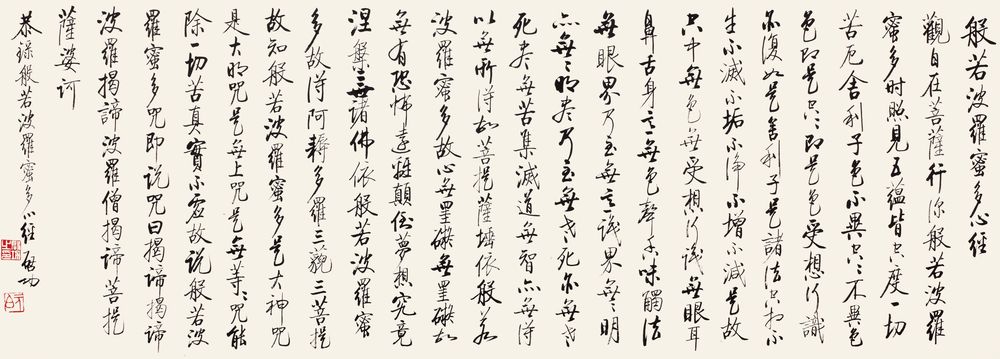 般若波羅蜜多心經
觀自在菩薩行深般若波羅
蜜多時照見五蘊皆空度一切
苦厄舍利子色不異空々不異色
色即是空々即是色受想行識
亦復如是舍利子是諸法空相不
生不滅不垢不淨不增不減是故
空中無色無受想行識無眼耳
鼻舌身意無色聲香味觸法
無眼界乃至無意識界無々明
亦無々明盡乃至無老死亦無老
死盡無苦集滅道無智亦無得
以無所得故菩提薩埵依般若
波羅蜜多故心無罣礙無罣礙故
無有恐怖遠離顛倒夢想究竟
涅槃三世諸佛依般若波羅蜜
多故得阿耨多羅三藐三菩提
故知般若波羅蜜多是大神咒
是大明咒是無上咒是無等々咒能
除一切苦真實不虛故說般若波
羅蜜多咒即說咒曰揭諦揭諦
波羅揭諦波羅僧揭諦菩提
薩婆訶
恭錄般若波羅蜜多心經 啟功